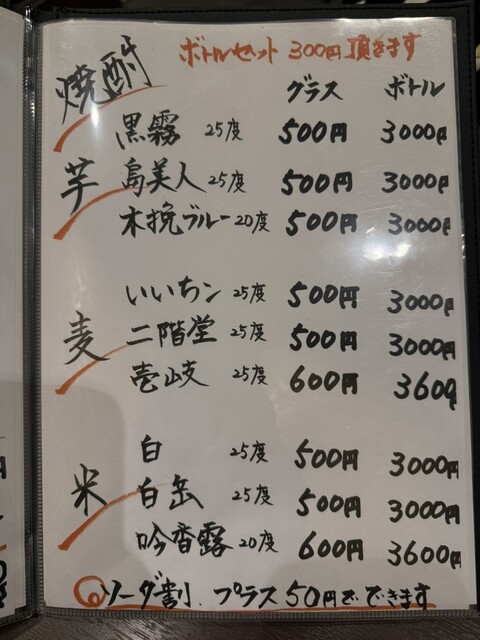 ボトルセット 300円 頂きます
焼酎 グラス ボトル
芋
黒霧 25度 500円 3000円
島美人 25度 500円 3000円
木挽ブルー 20度 500円 3000円
麦
いいちン 25度 500円 3000円
二階堂 25度 500円 3000円
壱岐 25度 600円 3600
米
白 25度 500円 3000円
白岳 25度 500円 3000円
吟香露 20度 600円 3600円
ソーダ割、プラス50円でできます